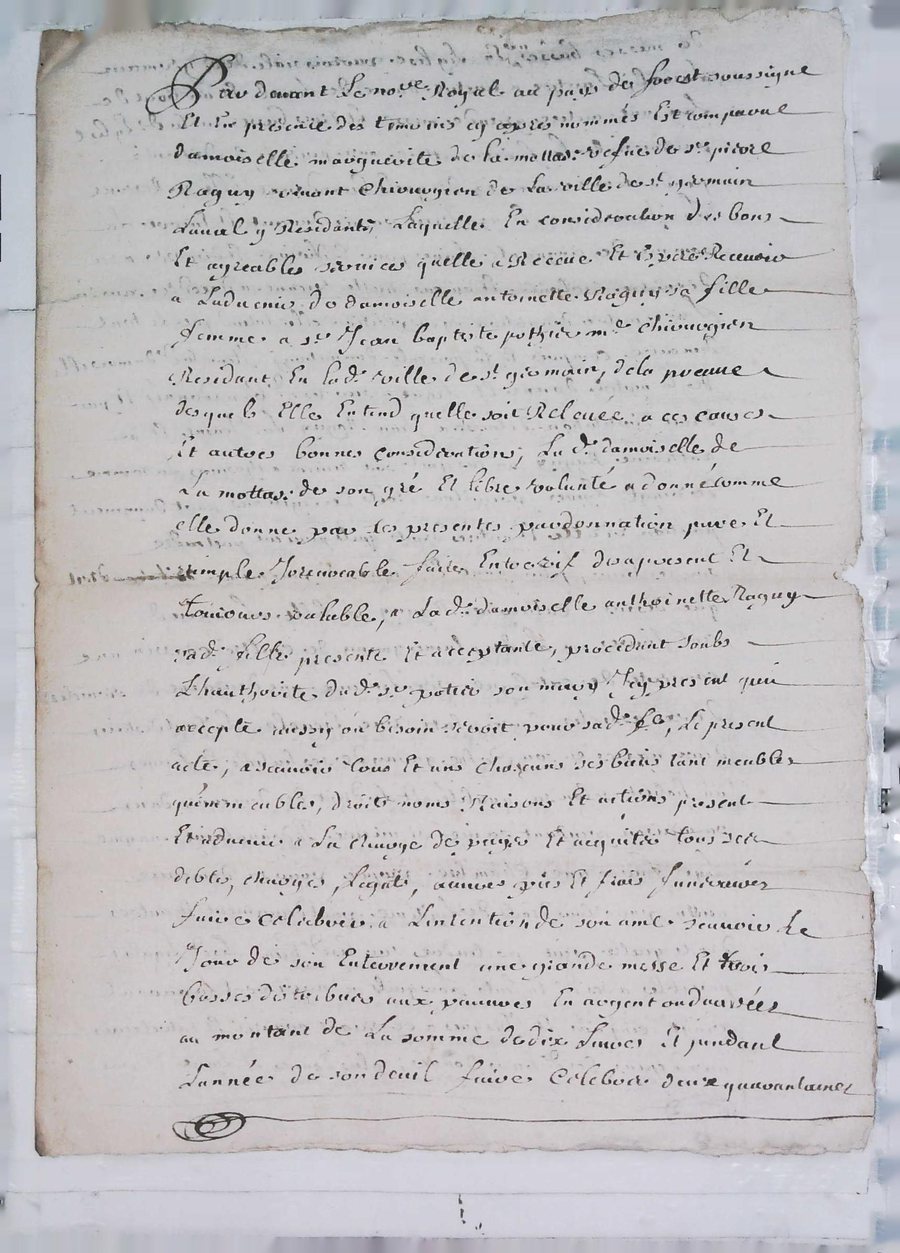 Par devant Le no.re Royal au pays de forest soussigne
Et En presence des temoins cy apres nommés Est comparue
damoiselle marguerite de la mottas. vefue de sr. pierre
Raguy vivant Chirurgien de La ville de st. germain
Laual y Residante, Laquelle En consideration des bons
Et agreables seruices quelle a Receue Et Espere Receuoir
a Laduenir de damoiselle antoinette Raguy sa fille
femme a sr. Jean baptiste pothier me. chirurgien
Residant En lade. ville de st. germain, de la preuue
desquels Elle Entend quelle soit Releuée, a ces causes
Et autres bonnes considerations, La de. damoiselle de
La mottas. de son gré Et libre volunté a donné comme
elle donne par ces presentes par donnation pure Et
simple Jrreuocable faitte Entre vif desapresent Et
toujours valable, a Lade. damoiselle anthoinette Raguy
sade. fille presente Et acceptante, procedant soubs
L'hauthorité dudt. sr. potier son mary Jcy present qui
accepte aussy ou besoin seroit pour sade. fe, Le present
acte, a scauoir tous Et uns chacuns ses biens tant meubles
qu'immeubles, droits noms Raisons Et actions present
Et aduenir a La charge de payer Et acquiter tous ses
debtes, charges, Legats, œuures pies Et frais funeraires
faire celebrer a L'intention de son ame scauoir Le
Jour de son Enterrement une grande messe Et trois
basses distribuer aux pauures En argent ou danrées
au montant de La somme de dix Liures Et pendant
L'année de son deuil faire Celebrer deux quarantaines